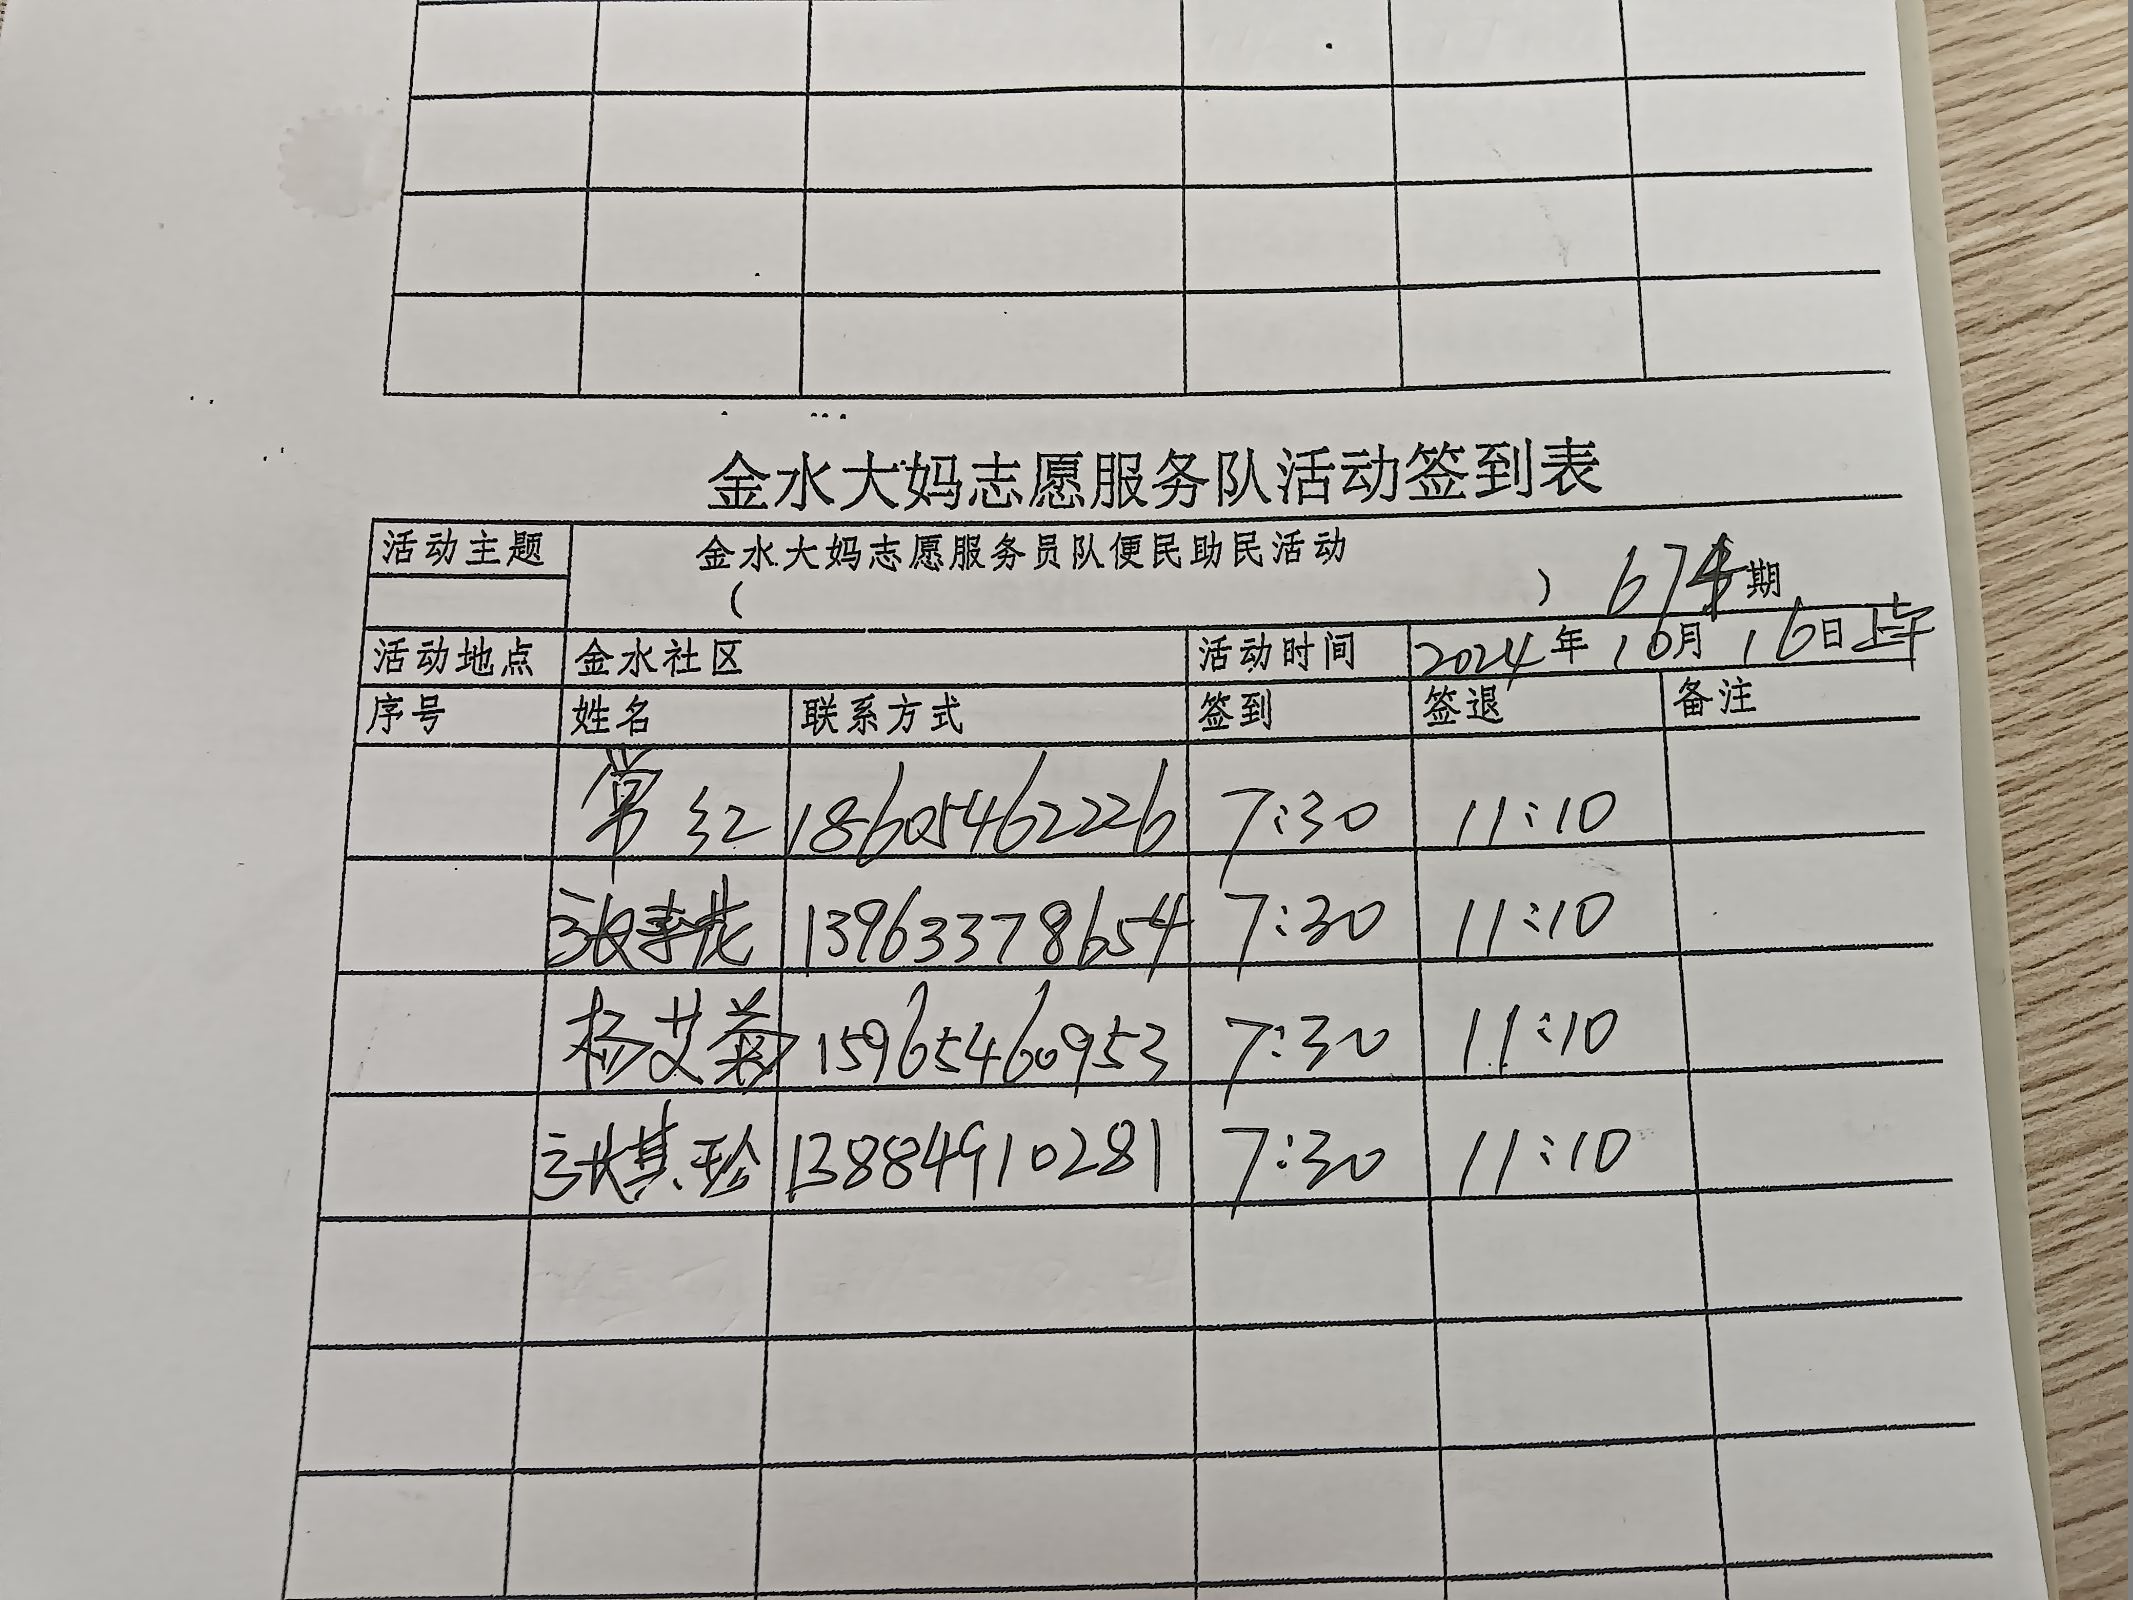 金水大妈志愿服务队活动签到表
活动主题 金水大妈志愿服务员队便民助民活动
( ) 674期
活动地点 金水社区 活动时间 2024年10月16日上午
序号 姓名 联系方式 签到 签退 备注
常红 18605462226 7:30 11:10
张 13963378654 7:30 11:10
杨艾菊 15965460953 7:30 11:10
张其珍 13884910281 7:30 11:10